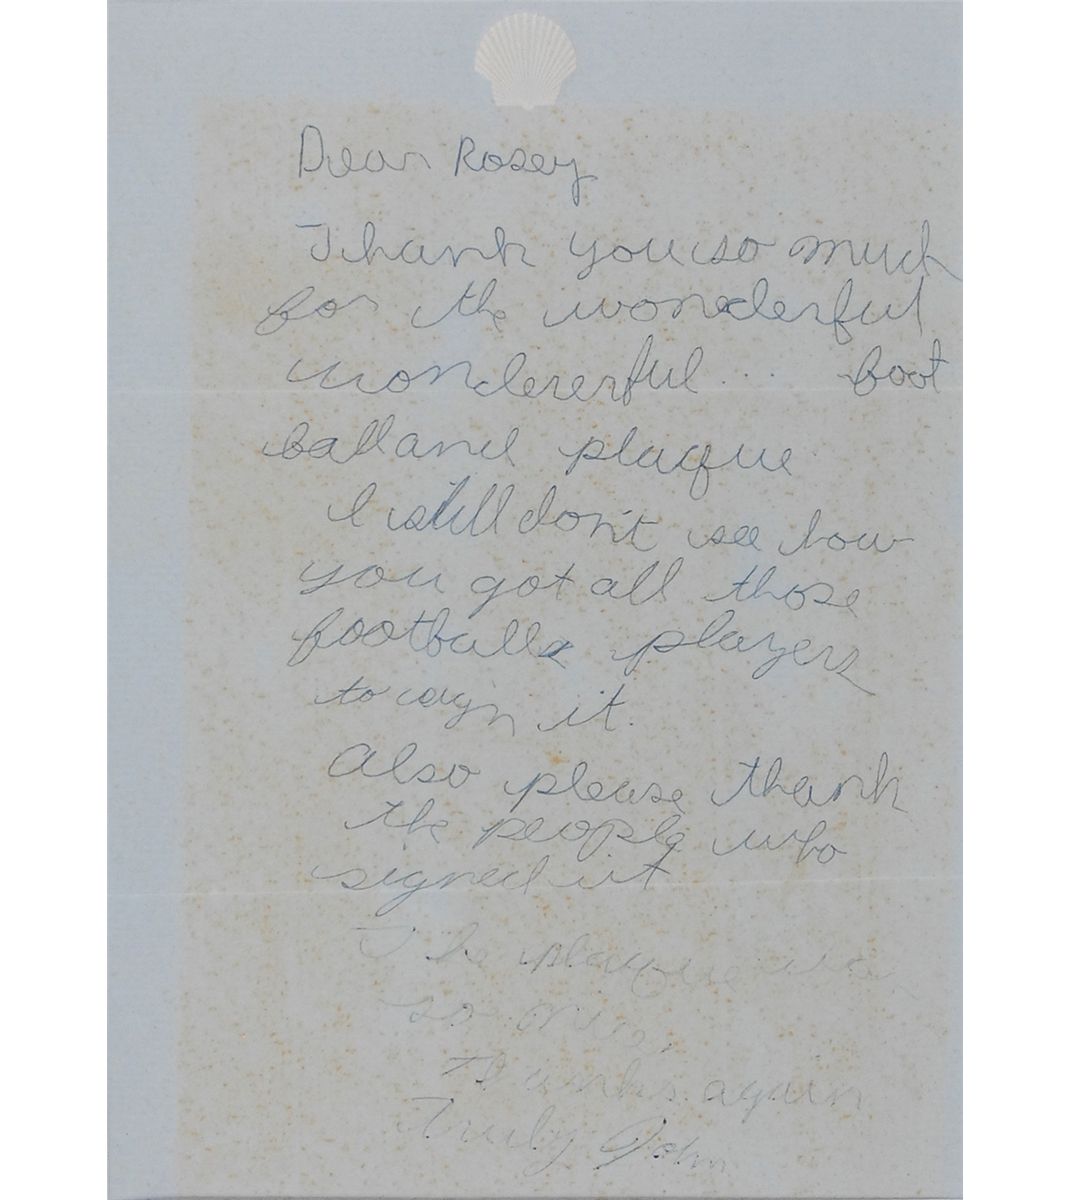 Dear Rosey
Thank you so much
for the wonderful
wondererful ... foot
ball and plaque
I still don't see how
you got all those
football players
to sign it.
Also please thank
the people who
signed it
The plaque was
so nice,
Thanks again
Truly John